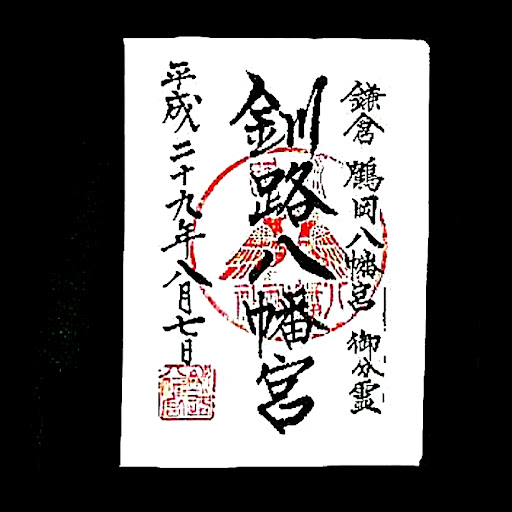 鎌倉 鶴岡八幡宮 御分霊
釧路八幡宮
平成二十九年八月七日